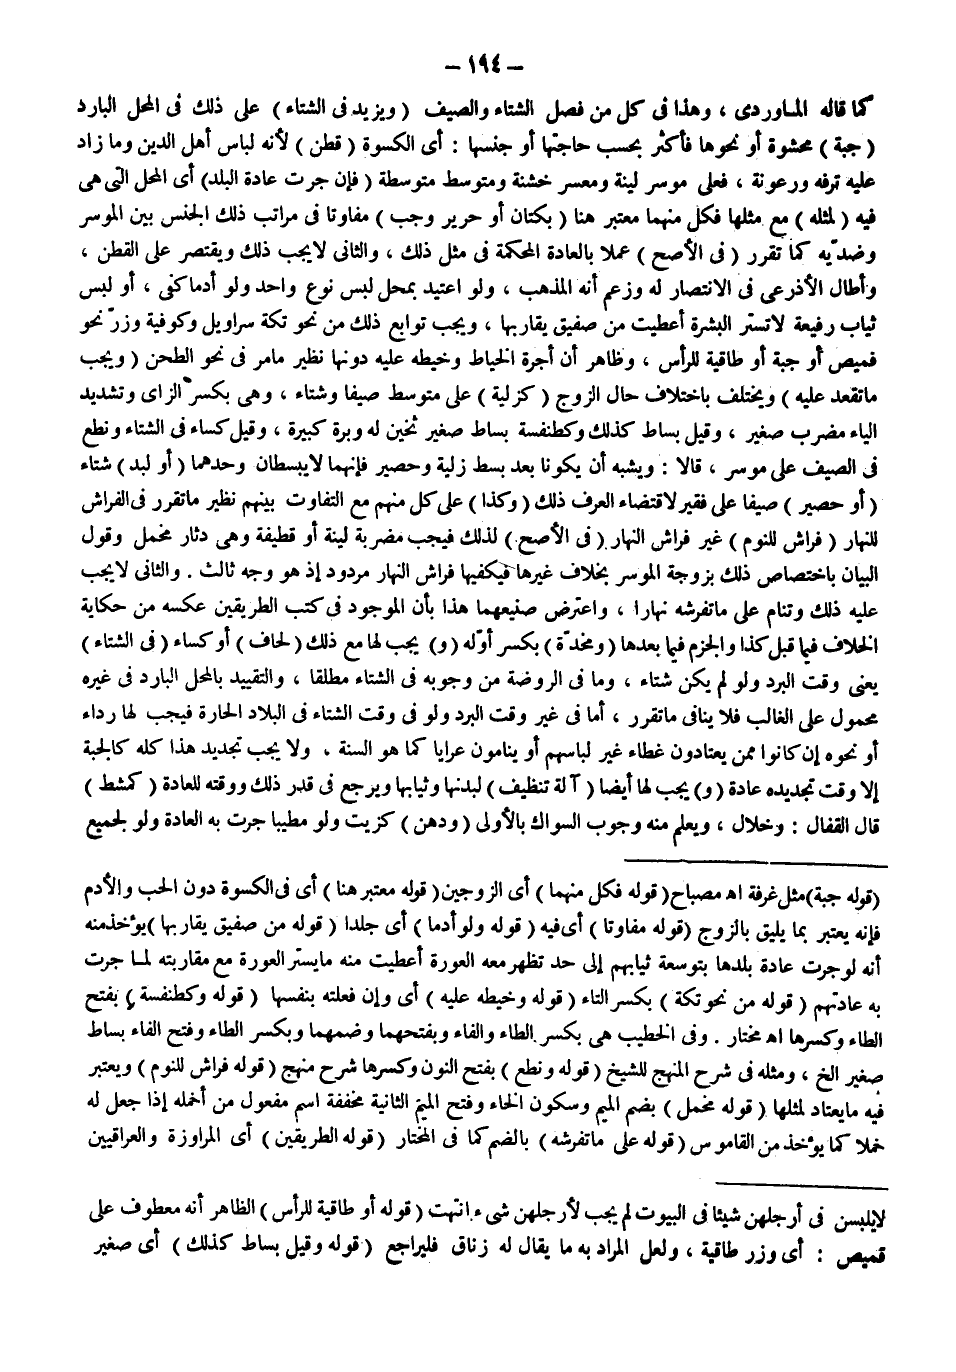 — ١٩٤ —
كما قاله الماوردى ، وهذا فى كل من فصل الشتاء والصيف ( ويزيد فى الشتاء ) على ذلك فى المحل البارد
( جبة ) محشوة أو نحوها فأكثر بحسب حاجتها أو جنسها : أى الكسوة ( قطن ) لأنه لباس أهل الدين وما زاد
عليه ترفه ورعونة ، فعلى موسر لينة ومعسر خشنة ومتوسط متوسطة ( فإن جرت عادة البلد ) أى المحل التى هى
فيه ( لمثله ) مع مثلها فكل منهما معتبر هنا ( بكتان أو حرير وجب ) مفاوتا فى مراتب ذلك الجنس بين الموسر
وضدّيه كما تقرر ( فى الأصح ) عملا بالعادة المحكمة فى مثل ذلك ، والثانى لايجب ذلك ويقتصر على القطن ،
وأطال الأذرعى فى الانتصار له وزعم أنه المذهب ، ولو اعتيد بمحل لبس نوع واحد ولو أدما كفى ، أو لبس
ثياب رفيعة لاتستر البشرة أعطيت من صفيق يقاربها ، ويجب توابع ذلك من نحو تكة سراويل وكوفية وزرّ نحو
قميص أو جبة أو طاقية للرأس ، وظاهر أن أجرة الخياط وخيطه عليه دونها نظير مامر فى نحو الطحن ( ويجب
ماتقعد عليه ) ويختلف باختلاف حال الزوج ( كزلية ) على متوسط صيفا وشتاء ، وهى بكسر الزاى وتشديد
الياء مضرب صغير ، وقيل بساط كذلك وكطنفسة بساط صغير ثخين له وبرة كبيرة ، وقيل كساء فى الشتاء ونطع
فى الصيف على موسر ، قالا : ويشبه أن يكونا بعد بسط زلية وحصير فإنهما لايبسطان وحدهما ( أو لبد ) شتاء
( أو حصير ) صيفا على فقير لاقتضاء العرف ذلك ( وكذا ) على كل منهم مع التفاوت بينهم نظير ماتقرر فى الفراش
للنهار ( فراش للنوم ) غير فراش النهار ( فى الأصح ) لذلك فيجب مضربة لينة أو قطيفة وهى دثار مخمل وقول
البيان باختصاص ذلك بزوجة الموسر بخلاف غيرها فيكفيها فراش النهار مردود إذ هو وجه ثالث . والثانى لايجب
عليه ذلك وتنام على ماتفرشه نهارا ، واعترض صنيعهما هذا بأن الموجود فى كتب الطريقين عكسه من حكاية
الخلاف فيما قبل كذا والجزم فيما بعدها ( ومخدّة ) بكسر أوّله ( و ) يجب لها مع ذلك ( لحاف ) أو كساء ( فى الشتاء )
يعنى وقت البرد ولو لم يكن شتاء ، وما فى الروضة من وجوبه فى الشتاء مطلقا ، والتقييد بالمحل البارد فى غيره
محمول على الغالب فلا ينافى ماتقرر ، أما فى غير وقت البرد ولو فى وقت الشتاء فى البلاد الحارة فيجب لها رداء
أو نحوه إن كانوا ممن يعتادون غطاء غير لباسهم أو ينامون عرايا كما هو السنة . ولا يجب تجديد هذا كله كالجبة
إلا وقت تجديده عادة ( و ) يجب لها أيضا ( آلة تنظيف ) لبدنها وثيابها ويرجع فى قدر ذلك ووقته للعادة ( كمشط )
قال القفال : وخلال ، ويعلم منه وجوب السواك بالأولى ( ودهن ) كزيت ولو مطيبا جرت به العادة ولو لجميع
( قوله جبة ) مثل غرفة اه مصباح ( قوله فكل منهما ) أى الزوجين ( قوله معتبر هنا ) أى فى الكسوة دون الحب والأدم
فإنه يعتبر بما يليق بالزوج ( قوله مفاوتا ) أى فيه ( قوله ولو أدما ) أى جلدا ( قوله من صفيق يقاربها ) يؤخذ منه
أنه لو جرت عادة بلدها بتوسعة ثيابهم إلى حد تظهر معه العورة أعطيت منه مايستر العورة مع مقاربته لما جرت
به عادتهم ( قوله من نحو تكة ) بكسر التاء ( قوله وخيطه عليه ) أى وإن فعلته بنفسها ( قوله وكطنفسة ) بفتح
الطاء وكسرها اه مختار . وفى الخطيب هى بكسر الطاء والفاء وبفتحهما وضمهما وبكسر الطاء وفتح الفاء بساط
صغير الخ ، ومثله فى شرح المنهج للشيخ ( قوله ونطع ) بفتح النون وكسرها شرح منهج ( قوله فراش للنوم ) ويعتبر
فيه مايعتاد لمثلها ( قوله مخمل ) بضم الميم وسكون الخاء وفتح الميم الثانية مخففة اسم مفعول من أخمله إذا جعل له
خملا كما يؤخذ من القاموس ( قوله على ماتفرشه ) بالضم كما فى المختار ( قوله الطريقين ) أى المراوزة والعراقيين
لايلبسن فى أرجلهن شيئا فى البيوت لم يجب لأرجلهن شىء . انتهت ( قوله أو طاقية للرأس ) الظاهر أنه معطوف على
قميص : أى وزر طاقية ، ولعل المراد به ما يقال له زناق فليراجع ( قوله وقيل بساط كذلك ) أى صغير